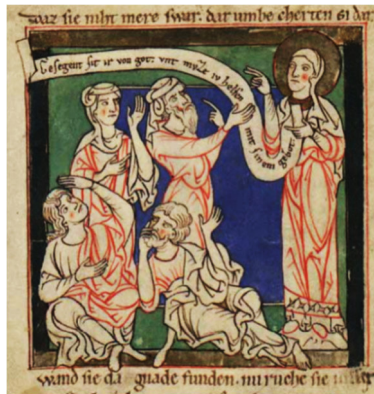 daz sie niht mere swar. dar umbe cherten si dar
Gesegent sit ir von got. vnt můzze iv helfen
mit sinem gebote
wand sie da gnade funden. nu ruche sie